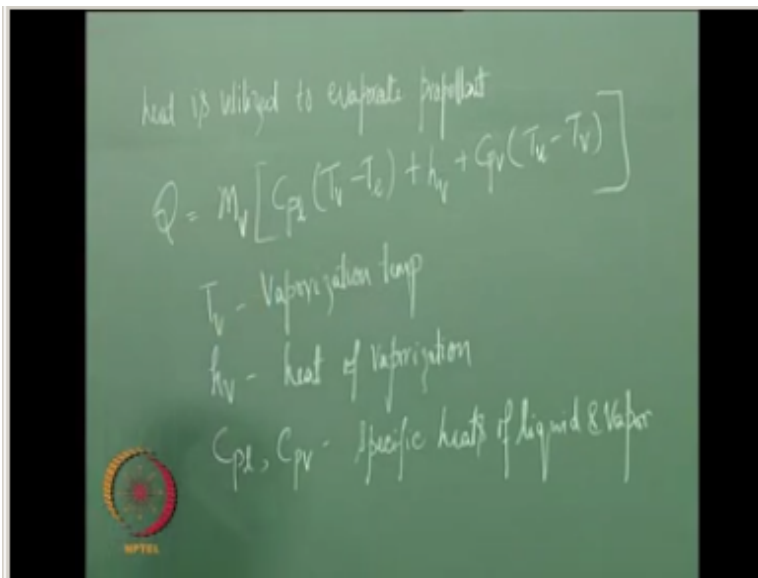 heat is utilized to evaporate propellant
Q = m_v [ C_pl (T_v - T_e) + h_v + C_pv (T_u - T_v) ]
T_v - Vaporization temp
h_v - heat of vaporization
C_pl, C_pv - specific heats of liquid & vapor
NPTEL